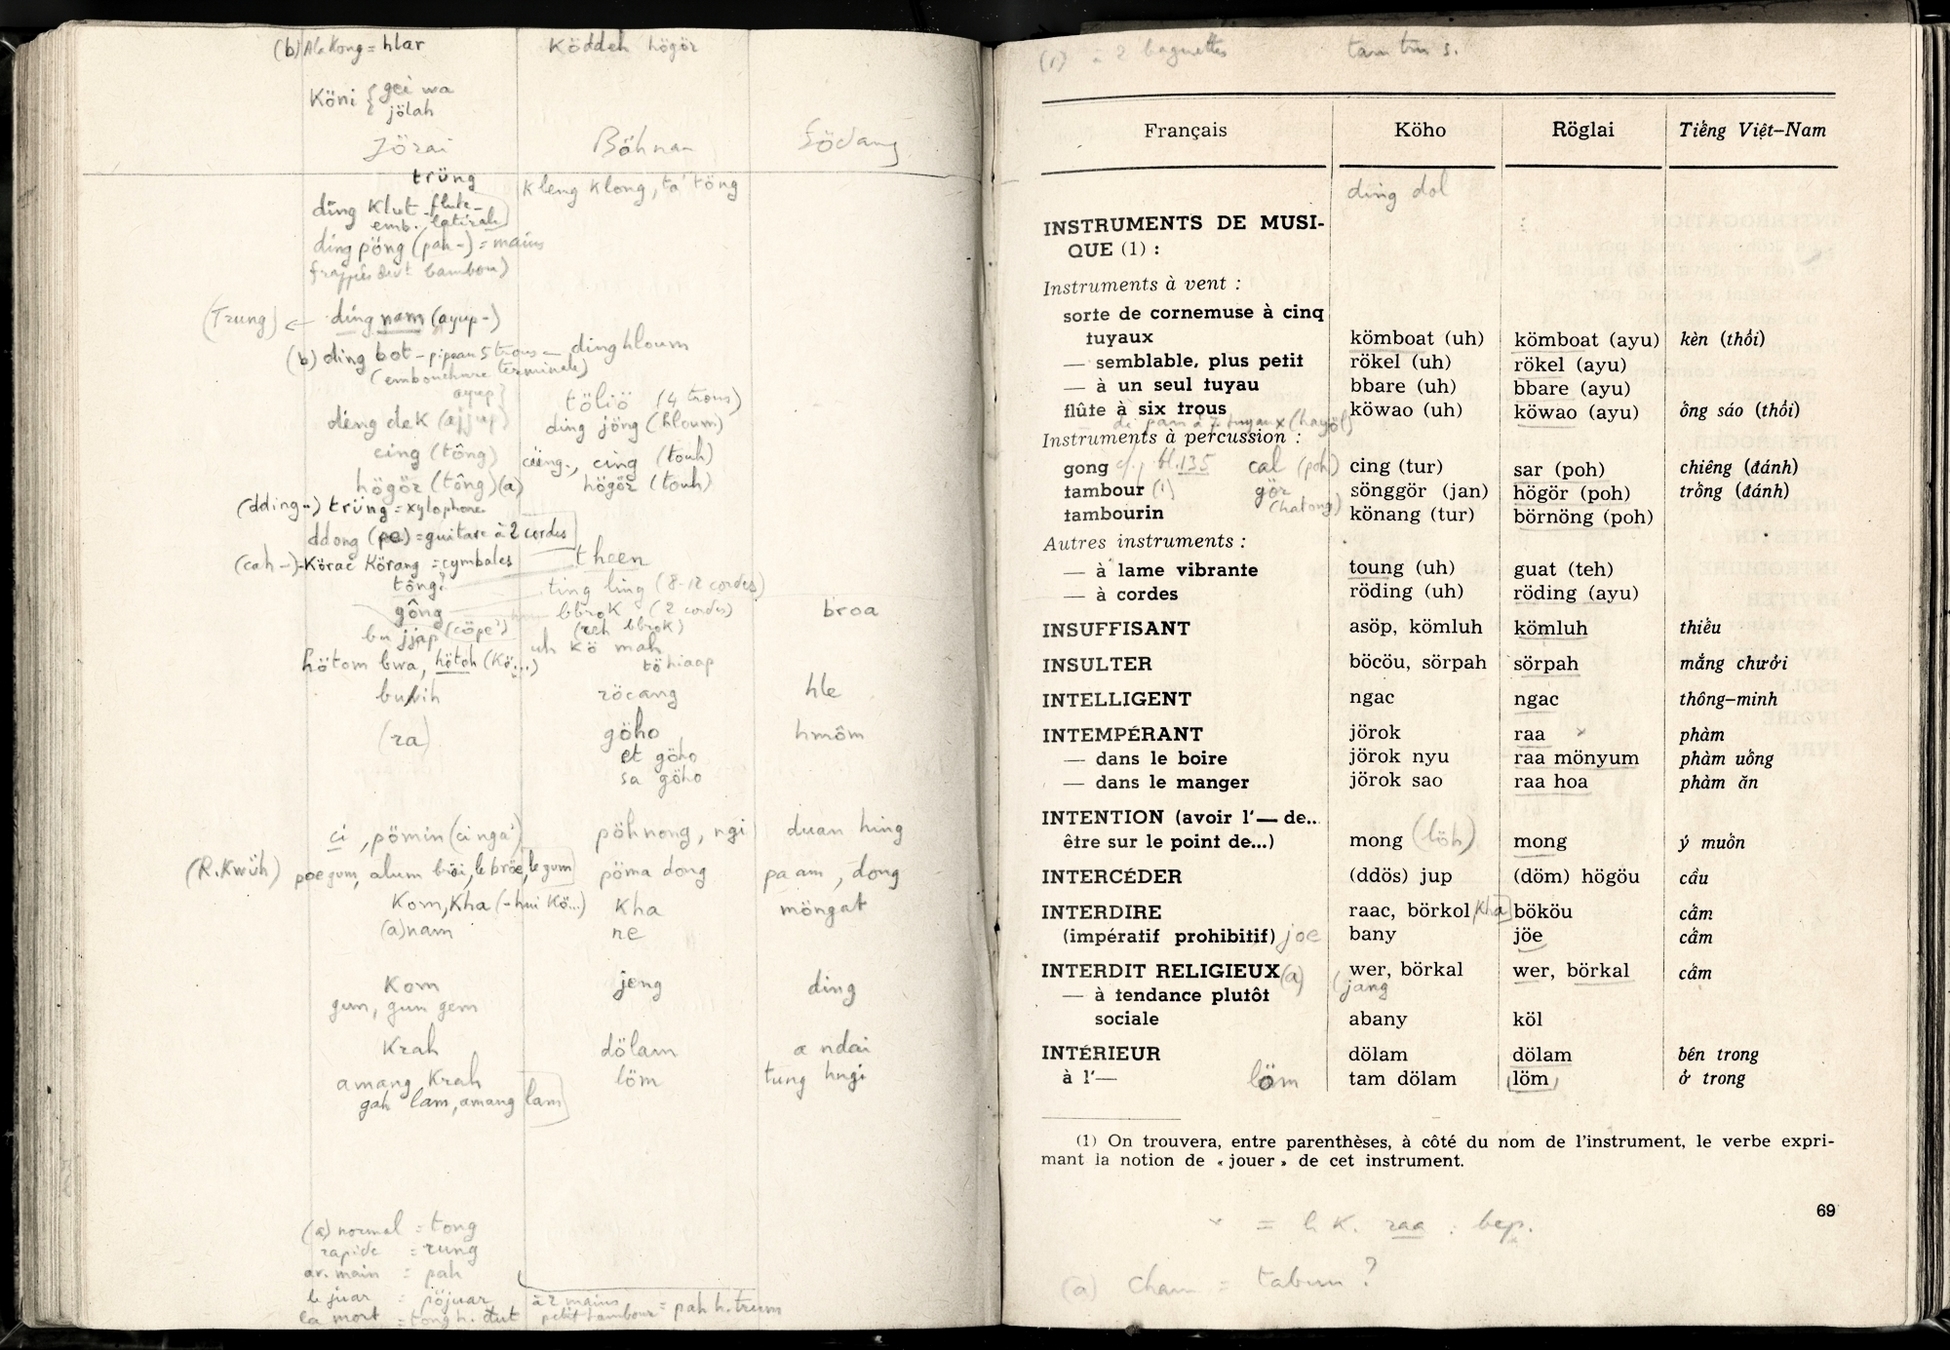 (b) Ala Kong = hlar Köddeh högör
Köni { gei wa
jölah
Jörai Böhnar Södang
trüng kleng klong, ta' töng
ding Klut - flute
emb. latérale
ding pöng (pah-) = mains
frappées devt bambou)
(Trung) ← ding nam (ayup-)
(b) ding bot - pipeau 5 trous — ding hloum
(embouchure terminale)
ayup} töliö (4 trous)
ding dek (ajjup) ding jöng (hloum)
cing (tông) cüng, cing (touh)
högör (tông) (a) högör (touh)
(dding-) trüng = xylophone
ddong (pe) = guitare à 2 cordes
(cah-) - Körac Körang = cymbales theen
tông? ting ling (8-12 cordes)
gông bbrok (2 cordes) broa
bu jjap (cöpe') (reh bbrok)
uh kö mah
hötom bwa, hötoh (Kö...) tö hiaap
bubih röcang hle
(ra) göho hmôm
et göho
sa göho
ci, pömin (cinga') pöhnong, ngi duan hing
(R.Kwüh) poegum, alum bröi, le bröe, le gum pöma dong pa am, dong
Kom, Kha (-hui Kö...) Kha möngat
(a)nam ne
Kom jeng ding
gum, gun gem
Krah dölam a ndai
amang Krah löm tung hngi
gah lam, amang lam
(a) normal = tong
rapide = rung
av. main = pah
le juar = pöjuar
la mort = tong h. đut
à 2 mains
petit tambour = pah h. trum
(1) = 2 baguettes tam tru s.
Français Köho Röglai Tiếng Việt–Nam
ding dol
INSTRUMENTS DE MUSI-
QUE (1) :
Instruments à vent :
sorte de cornemuse à cinq
tuyaux kömboat (uh) kömboat (ayu) kèn (thổi)
— semblable, plus petit rökel (uh) rökel (ayu)
— à un seul tuyau bbare (uh) bbare (ayu)
flûte à six trous köwao (uh) köwao (ayu) ông sáo (thổi)
de pan à 7 tuyaux (hayöt)
Instruments à percussion :
gong cf. p bl. 135 cal (poh) cing (tur) sar (poh) chiêng (đánh)
tambour (1) gör sönggör (jan) högör (poh) trồng (đánh)
(hatong)
tambourin könang (tur) börnöng (poh)
Autres instruments :
— à lame vibrante toung (uh) guat (teh)
— à cordes röding (uh) röding (ayu)
INSUFFISANT asöp, kömluh kömluh thiếu
INSULTER böcöu, sörpah sörpah mắng chưởi
INTELLIGENT ngac ngac thông–minh
INTEMPÉRANT jörok raa phàm
— dans le boire jörok nyu raa mönyum phàm uống
— dans le manger jörok sao raa hoa phàm ăn
INTENTION (avoir l'— de...
être sur le point de...) mong (löh) mong ý muồn
INTERCÉDER (ddös) jup (döm) högöu cầu
INTERDIRE raac, börkol, kha bököu cấm
(impératif prohibitif) joe bany jöe cấm
INTERDIT RELIGIEUX (a) wer, börkal wer, börkal cấm
(jang
— à tendance plutôt
sociale abany köl
INTÉRIEUR dölam dölam bén trong
à l'— löm tam dölam (löm) ở trong
(1) On trouvera, entre parenthèses, à côté du nom de l'instrument, le verbe expri-
mant la notion de « jouer » de cet instrument.
69
= h K. raa : bep.
(a) Cham = tabun ?